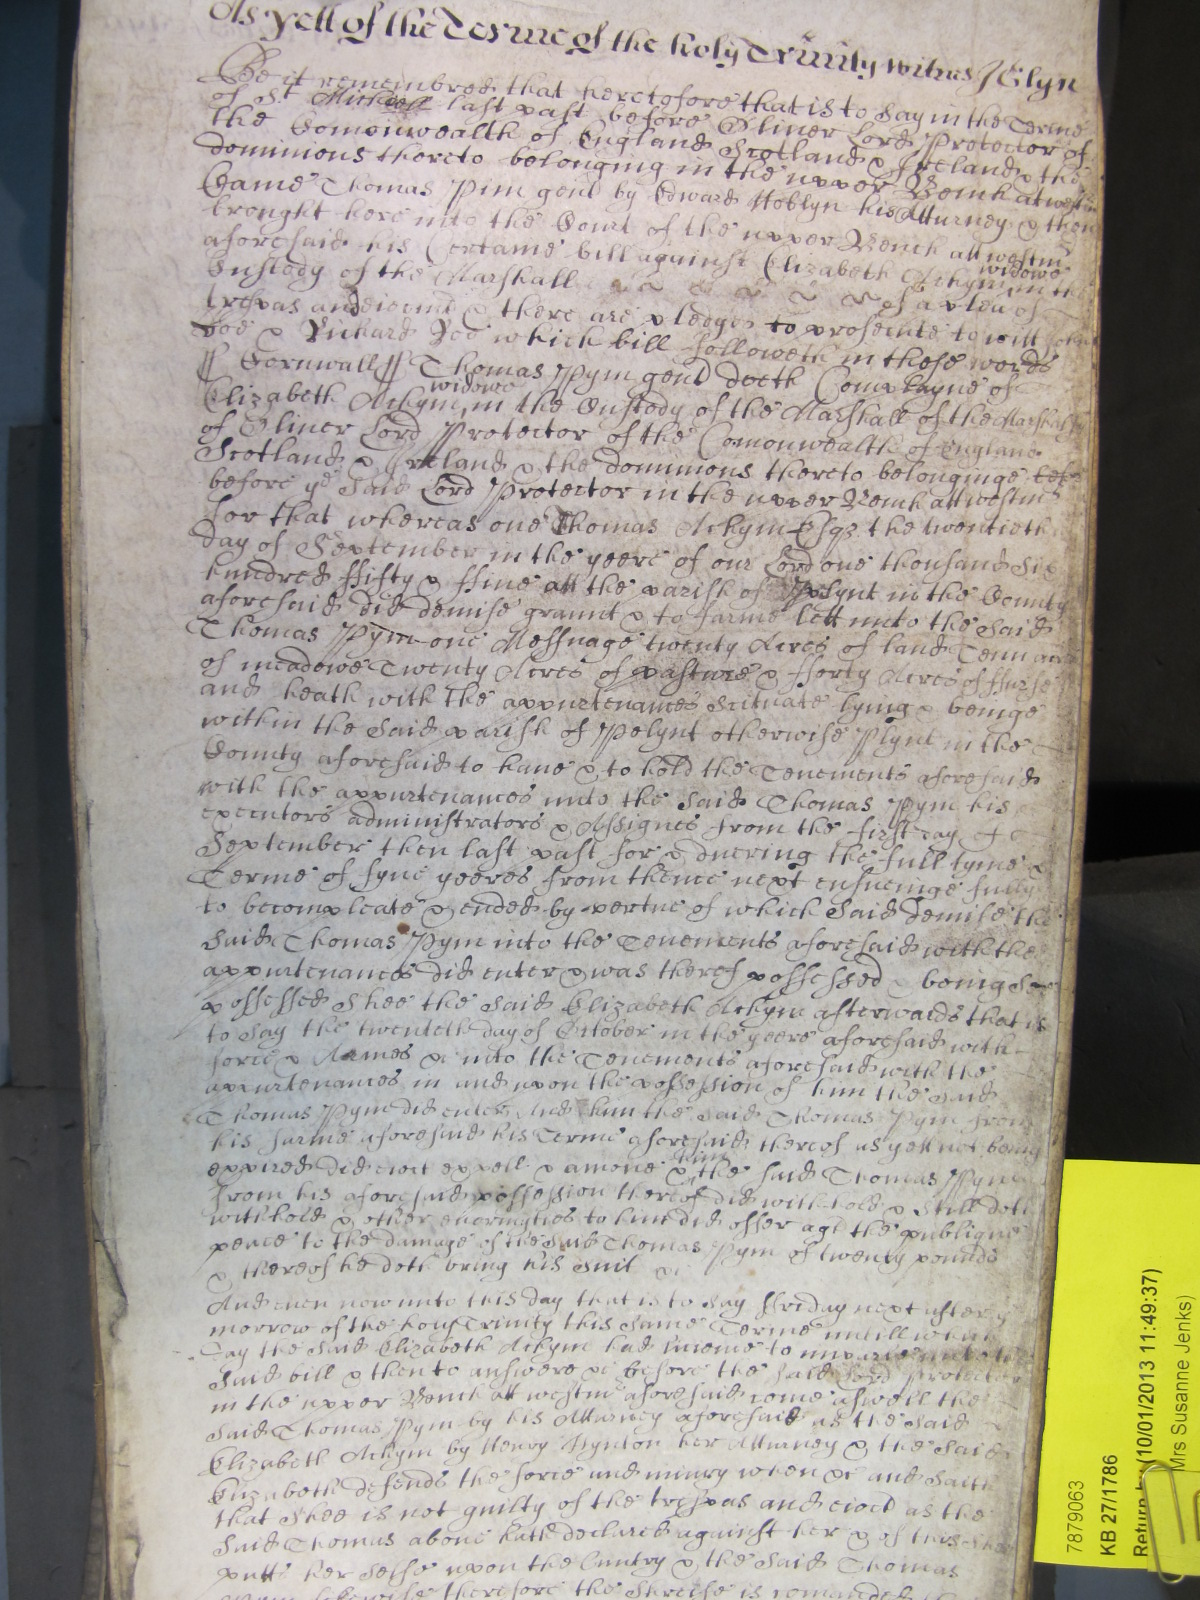 As yett of the Terme of the holy Trinity witnes J Glyn
Be it remembred that heretofore that is to say in the Terme
of St Michaell last past before Oliver Lord Protector of
the Comonwealth of England Scotland & Ireland & the
dominions thereto belonging in the upper Bench at westm
Came Thomas Pim gent by Edward Hoblyn his Atturney & then
brought here into the Court of the upper Bench att westmr
aforesaid his Certaine bill against Elizabeth Achym widowe in the
Custody of the Marshall of a plea of
trespas and eiectmt & there are pledges to prosecute to witt John
Doe & Richard Roe which bill followeth in these words
ss Cornwall ss Thomas Pym gent doth Complayne of
Elizabeth Achym widowe in the Custody of the Marshall of the Marshalsey
of Oliver Lord Protector of the Comonwealth of England
Scotland & Ireland & the dominions thereto belonginge
before ye said Lord Protector in the upper Bench att westmr
for that whereas one Thomas Achym Esqr the twentieth
day of September in the yeere of our Lord one thousand six
hundred ffifty & ffive att the parish of Pelynt in the County
aforesaid did demise graunt & to farme lett unto the said
Thomas Pym one Messuage twenty Acres of land Tenn acres
of meadowe Twenty Acres of pasture & fforty Acres of ffurse
and heath with the appurtenances scituate lying & beinge
within the said parish of Pelynt otherwise Plynt in the
County aforesaid to have & to hold the Tenements aforesaid
with the appurtenances unto the said Thomas Pym his
executors administrators & Assignes from the first day of
September then last past for & duering the full tyme &
Terme of fyve yeeres from thence next ensueinge fully
to be compleate & ended by vertue of which said demise the
said Thomas Pym into the Tenements aforesaid with the
appurtenances did enter & was thereof possessed & being soe
possessed shee the said Elizabeth Achym afterwards that is
to say the twentieth day of October in the yeere aforesaid with
force & Armes &c into the Tenements aforesaid with the
appurtenances in and upon the possession of him the said
Thomas Pym did enter And him the said Thomas Pym from
his farme aforesaid his Terme aforesaid thereof as yett not being
expired did eiect expell & amove & him the said Thomas Pym
from his aforesaid possession thereof did withhold & still doth
withhold & other enormyties to him did offer agt the publique
peace to the damage of the said Thomas Pym of twenty pounds
& thereof he doth bring his suit &c
And even now unto this day that is to say ffriday next after ye
morrow of the holy Trinity this same Terme untill which
day the said Elizabeth Achym had licence to imparle unto the
said bill & then to answere &c before the said Lord Protector
in the upper Bench att westmr aforesaid come aswell the
said Thomas Pym by his Atturney aforesaid as the said
Elizabeth Achym by Henry Hynton her Atturney & the said
Elizabeth defends the force and iniury when &c and saith
that shee is not guilty of the trespas and eiect as the
said Thomas above hath declared against her & of this shee
putts her selfe upon the Cuntry & the said Thomas
Pym likewise therefore the Shreife is comanded
7879063
KB 27/1786
Return by (10/01/2013 11:49:37)
Mrs Susanne Jenks)